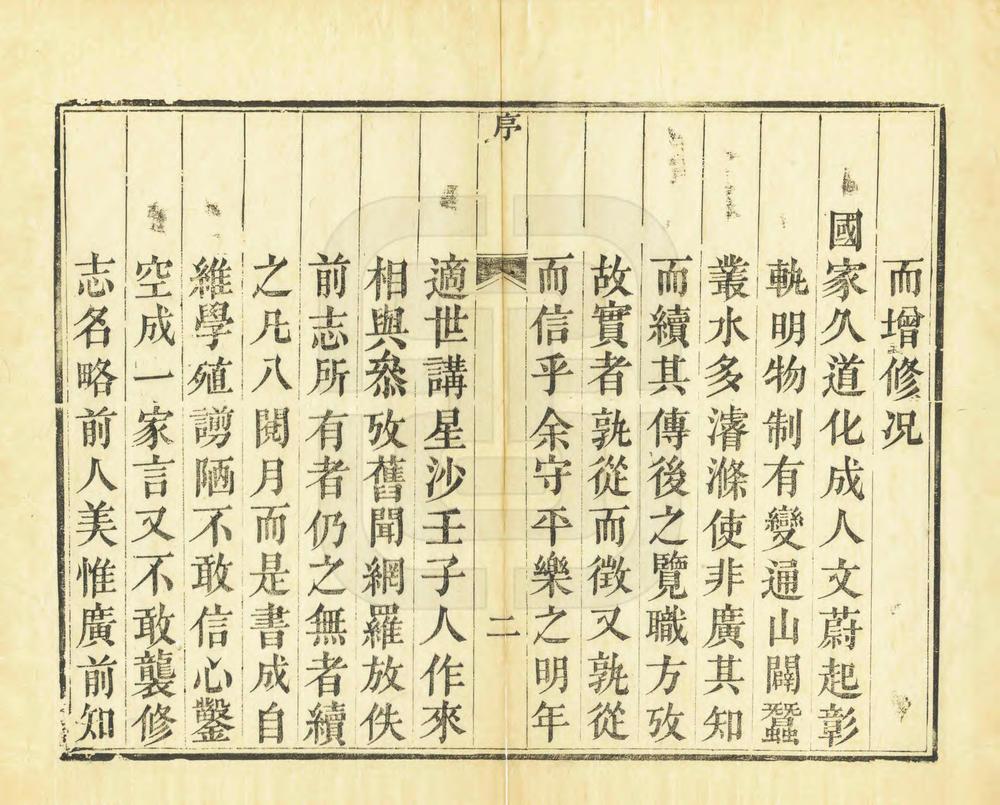 而增修况
國家久道化成人文蔚起彰
軌明物制有變通山闢蠶
叢水多濬滌使非廣其知
而續其傳後之覽職方攷
故實者孰從而徵又孰從
而信乎余守平樂之明年
序
二
適世講星沙王子人作來
相與叅攷舊聞網羅放佚
前志所有者仍之無者續
之凡八閱月而是書成自
維學殖謭陋不敢信心鑿
空成一家言又不敢襲修
志名略前人美惟廣前知